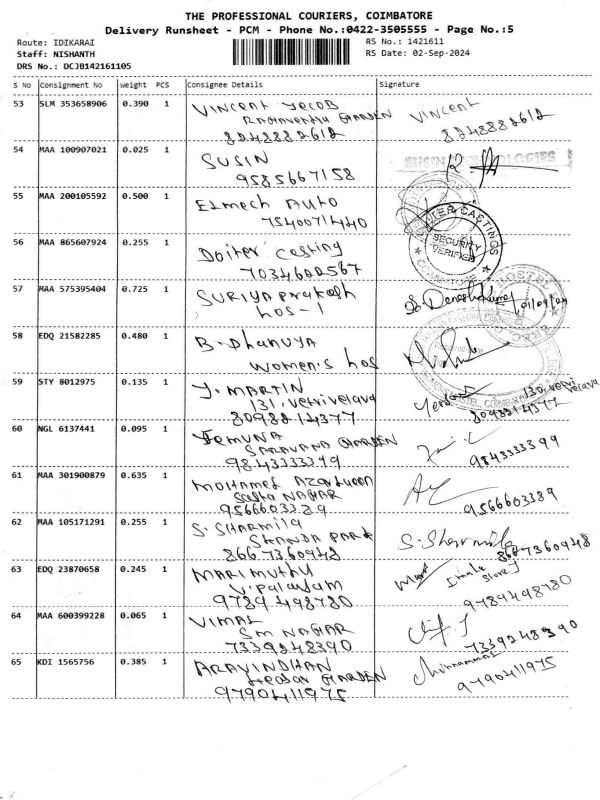 THE PROFESSIONAL COURIERS, COIMBATORE
Delivery Runsheet - PCM - Phone No.:0422-3505555 - Page No.:5
Route: IDIKARAI
RS No.: 1421611
Staff: NISHANTH
RS Date: 02-Sep-2024
DRS No.: DCJB142161105
S No Consignment No Weight PCS Consignee Details Signature
53 SLM 353658906 0.390 1 VINCENT JECOB VINCENT
GARDEN
8248882612 8248882612
54 MAA 100907021 0.025 1 SUSIN
9585667158
55 MAA 200105592 0.500 1 Elmech Auto
7540071440
56 MAA 865607924 0.255 1 Doiter Casting
7034600567
CASTINGS
SECURITY
VERIFIED
57 MAA 575395404 0.725 1 SURIYA prakash
hos-1
58 EDQ 21582285 0.480 1 B. Dhanuya
women's hos
59 STY 8012975 0.135 1 J. MARTIN
131, vetrivelava
8098814377 8098814377
60 NGL 6137441 0.095 1 JEMUNA
SARAVANA GARDEN
9843333399 9843333399
61 MAA 301900879 0.635 1 MOHAMED
NAGAR
9566603389 9566603389
62 MAA 105171291 0.255 1 S. SHARMila S. Sharmila
PARK
8667360948 8667360948
63 EDQ 23870658 0.245 1 MARIMUTHU
V. palayam
9789498780 9789498780
64 MAA 600399228 0.065 1 VIMAL
SM NAGAR
7339248390 7339248390
65 KDI 1565756 0.385 1 ARAVINDHAN
GARDEN
9790411975 9790411975